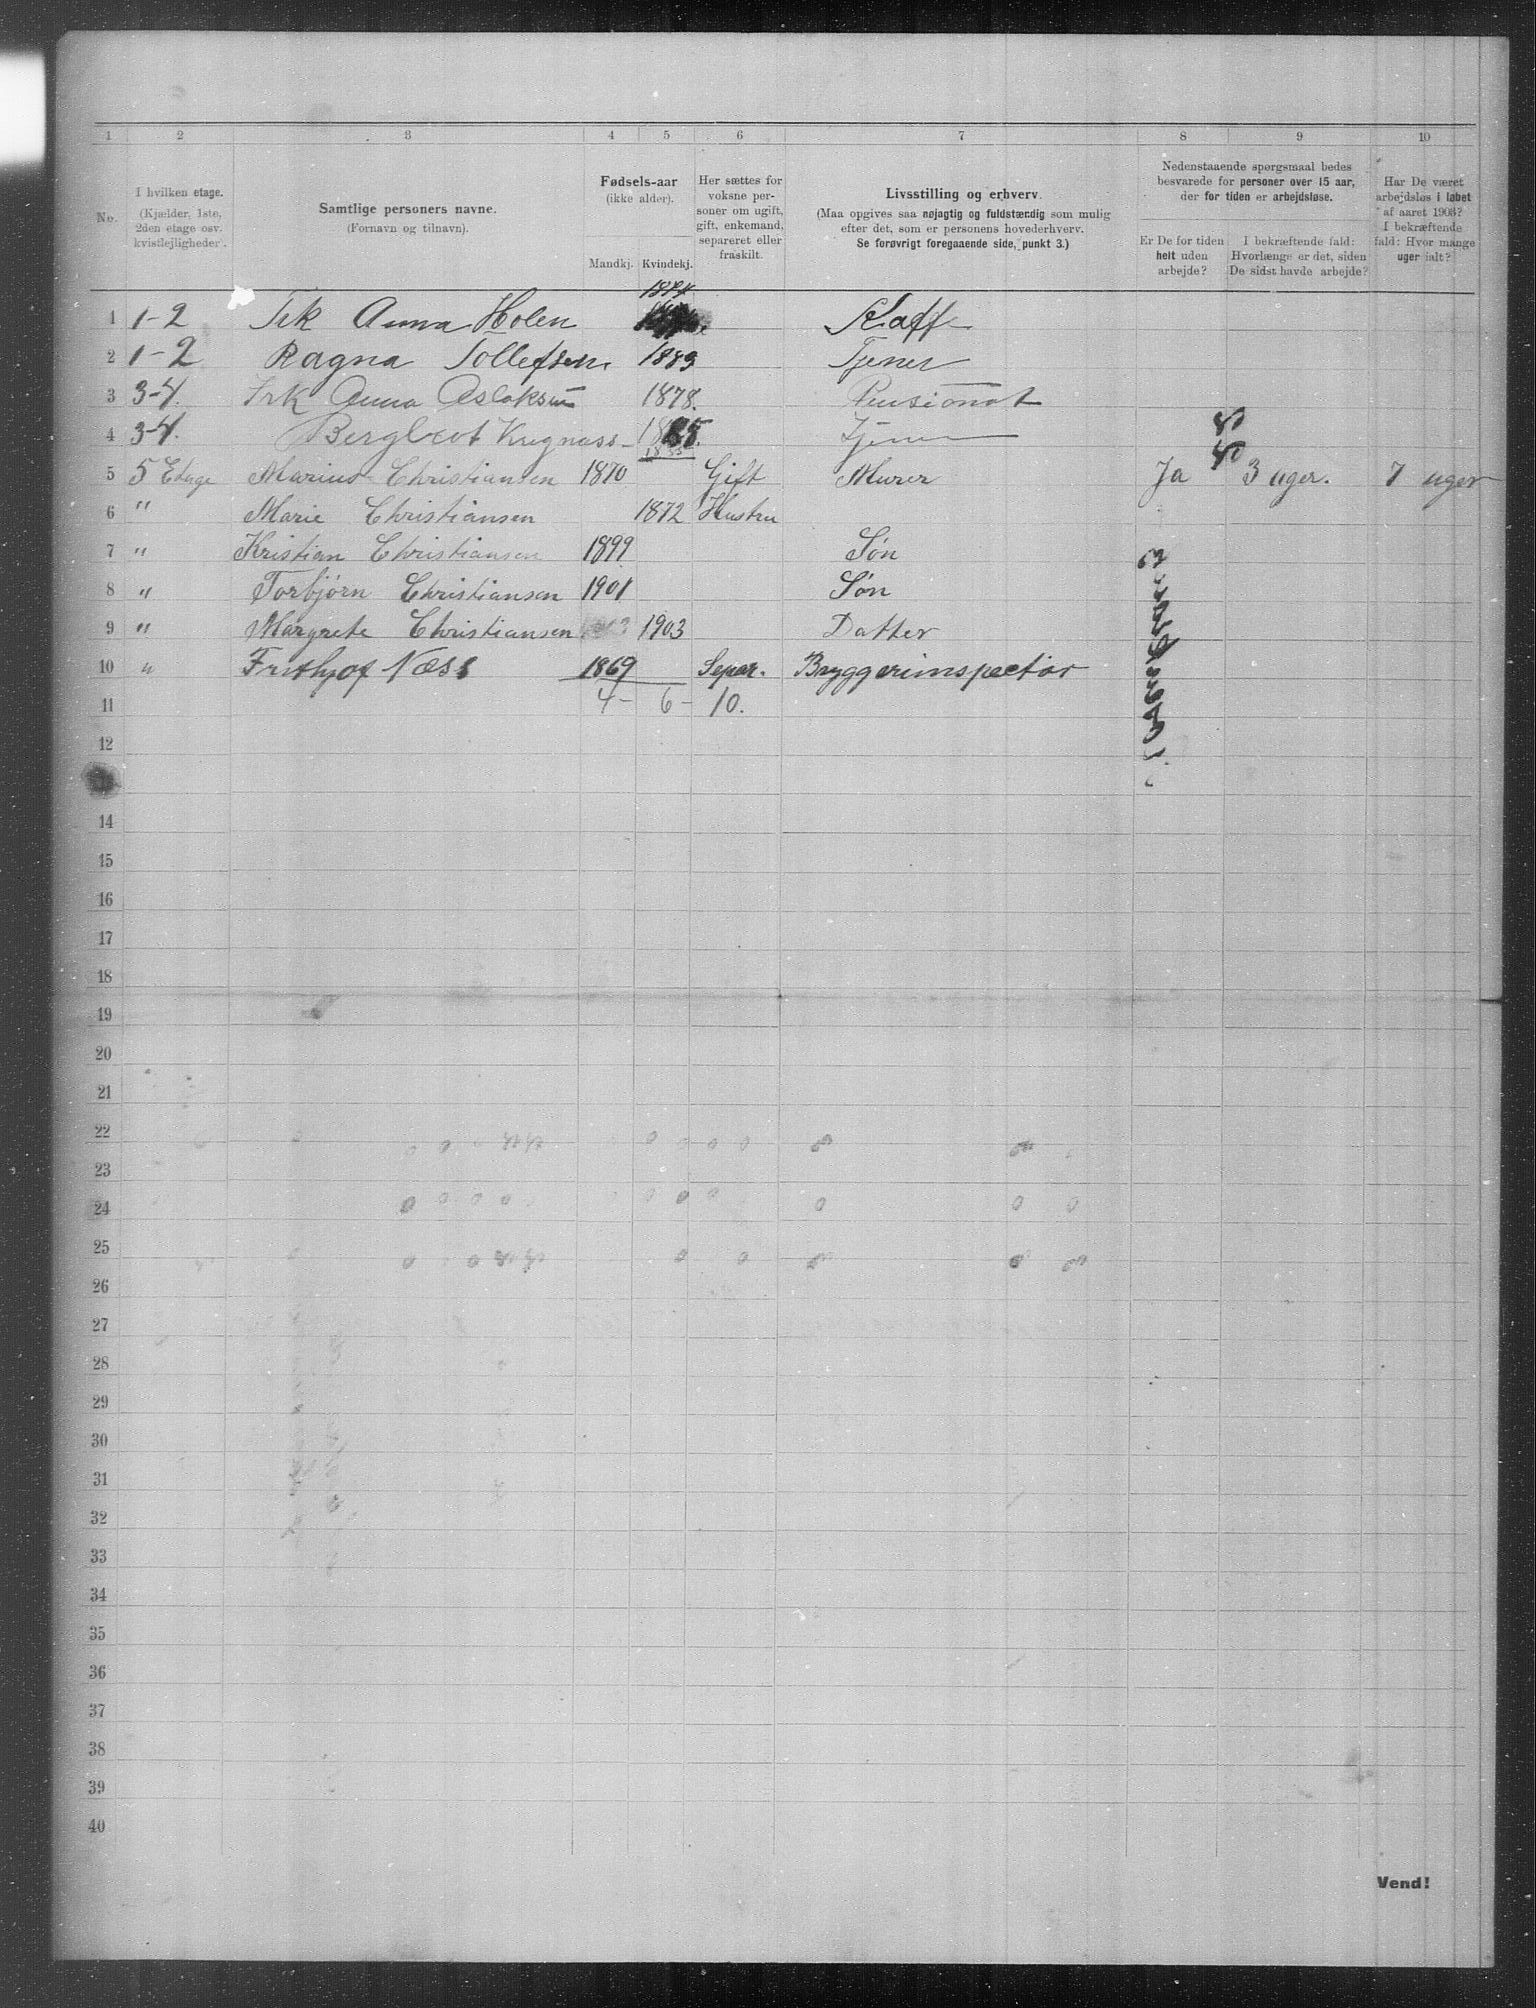 1 2 3 4 5 6 7 8 9 10
No.
I hvilken etage.
(Kjælder, 1ste,
2den etage osv.
kvistlejligheder).
Samtlige personers navne.
(Fornavn og tilnavn).
Fødsels-aar
(ikke alder).
Mandkj. Kvindekj.
Her sættes for
voksne per-
soner om ugift,
gift, enkemand,
separeret eller
fraskilt.
Livsstilling og erhverv.
(Maa opgives saa nøjagtig og fuldstændig som mulig
efter det, som er personens hovederhverv.
Se forøvrigt foregaaende side, punkt 3.)
Nedenstaaende spørgsmaal bedes
besvarede for personer over 15 aar,
der for tiden er arbejdsløse.
Er De for tiden
helt uden
arbejde?
I bekræftende fald:
Hvorlænge er det, siden
De sidst havde arbejde?
Har De været
arbejdsløs i løbet
af aaret 1903?
I bekræftende
fald: Hvor mange
uger ialt?
1 1-2 Frk Anna Holen 1874 Kaffe
2 1-2 Ragna Tollefsen. 1883 Tjener
3 3-4. Frk Anna Aslaksen 1878. Pensionat
4 3-4. Bergliot Tjener
5 5 Etage Marius Christiansen 1870 Gift Murer Ja 3 uger. 7 uger
6 " Marie Christiansen 1872 Hustru
7 " Kristian Christiansen 1899 Søn
8 " Torbjørn Christiansen 1901 Søn
9 " Margrete Christiansen 1903 Datter
10 " Frithjof Næss 1869 Separ. Bryggeriinspectør
11 4- 6- 10.
12
14
15
16
17
18
19
20
21
22
23
24
25
26
27
28
29
30
31
32
33
34
35
36
37
38
39
40
Vend!